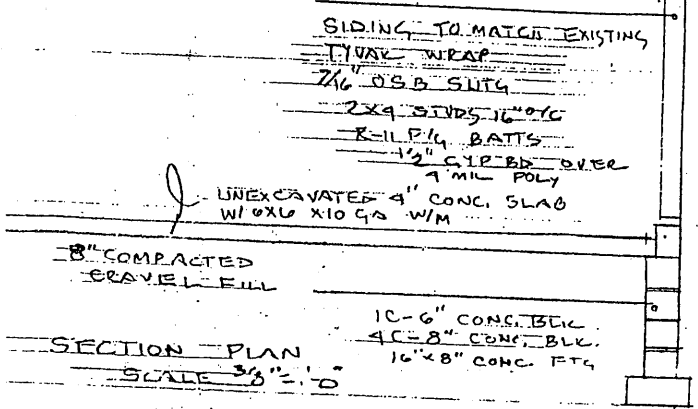 SIDING TO MATCH EXISTING
TYVAK WRAP
7/16" OSB SHTG
2X4 STUDS 16" O/C
R-11 F/G BATTS
1/2" GYP BD OVER
4 MIL POLY
UNEXCAVATED 4" CONC. SLAB
W/ 6X6 X10 GA W/M
8" COMPACTED
GRAVEL FILL
1C-6" CONC. BLK.
4C-8" CONC. BLK.
16"x8" CONC. FTG
SECTION PLAN
SCALE 3/8"=1'-0"